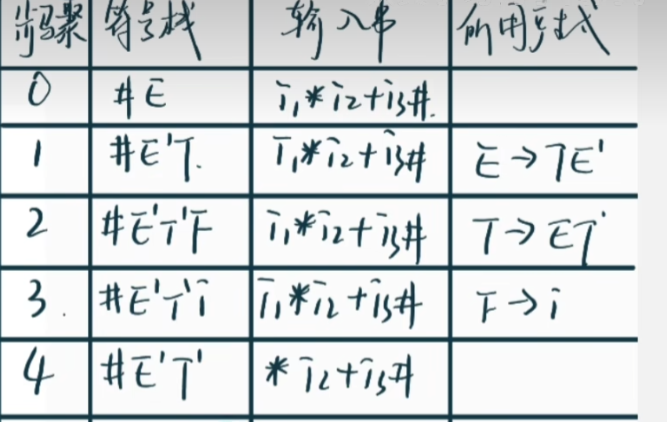 步骤 符号栈 输入串 所用产生式
0 #E i₁*i₂+i₃#.
1 #E'T. i₁*i₂+i₃# E→TE'
2 #E'T'F i₁*i₂+i₃# T→ET'
3. #E'T'i i₁*i₂+i₃# F→i
4 #E'T' *i₂+i₃#